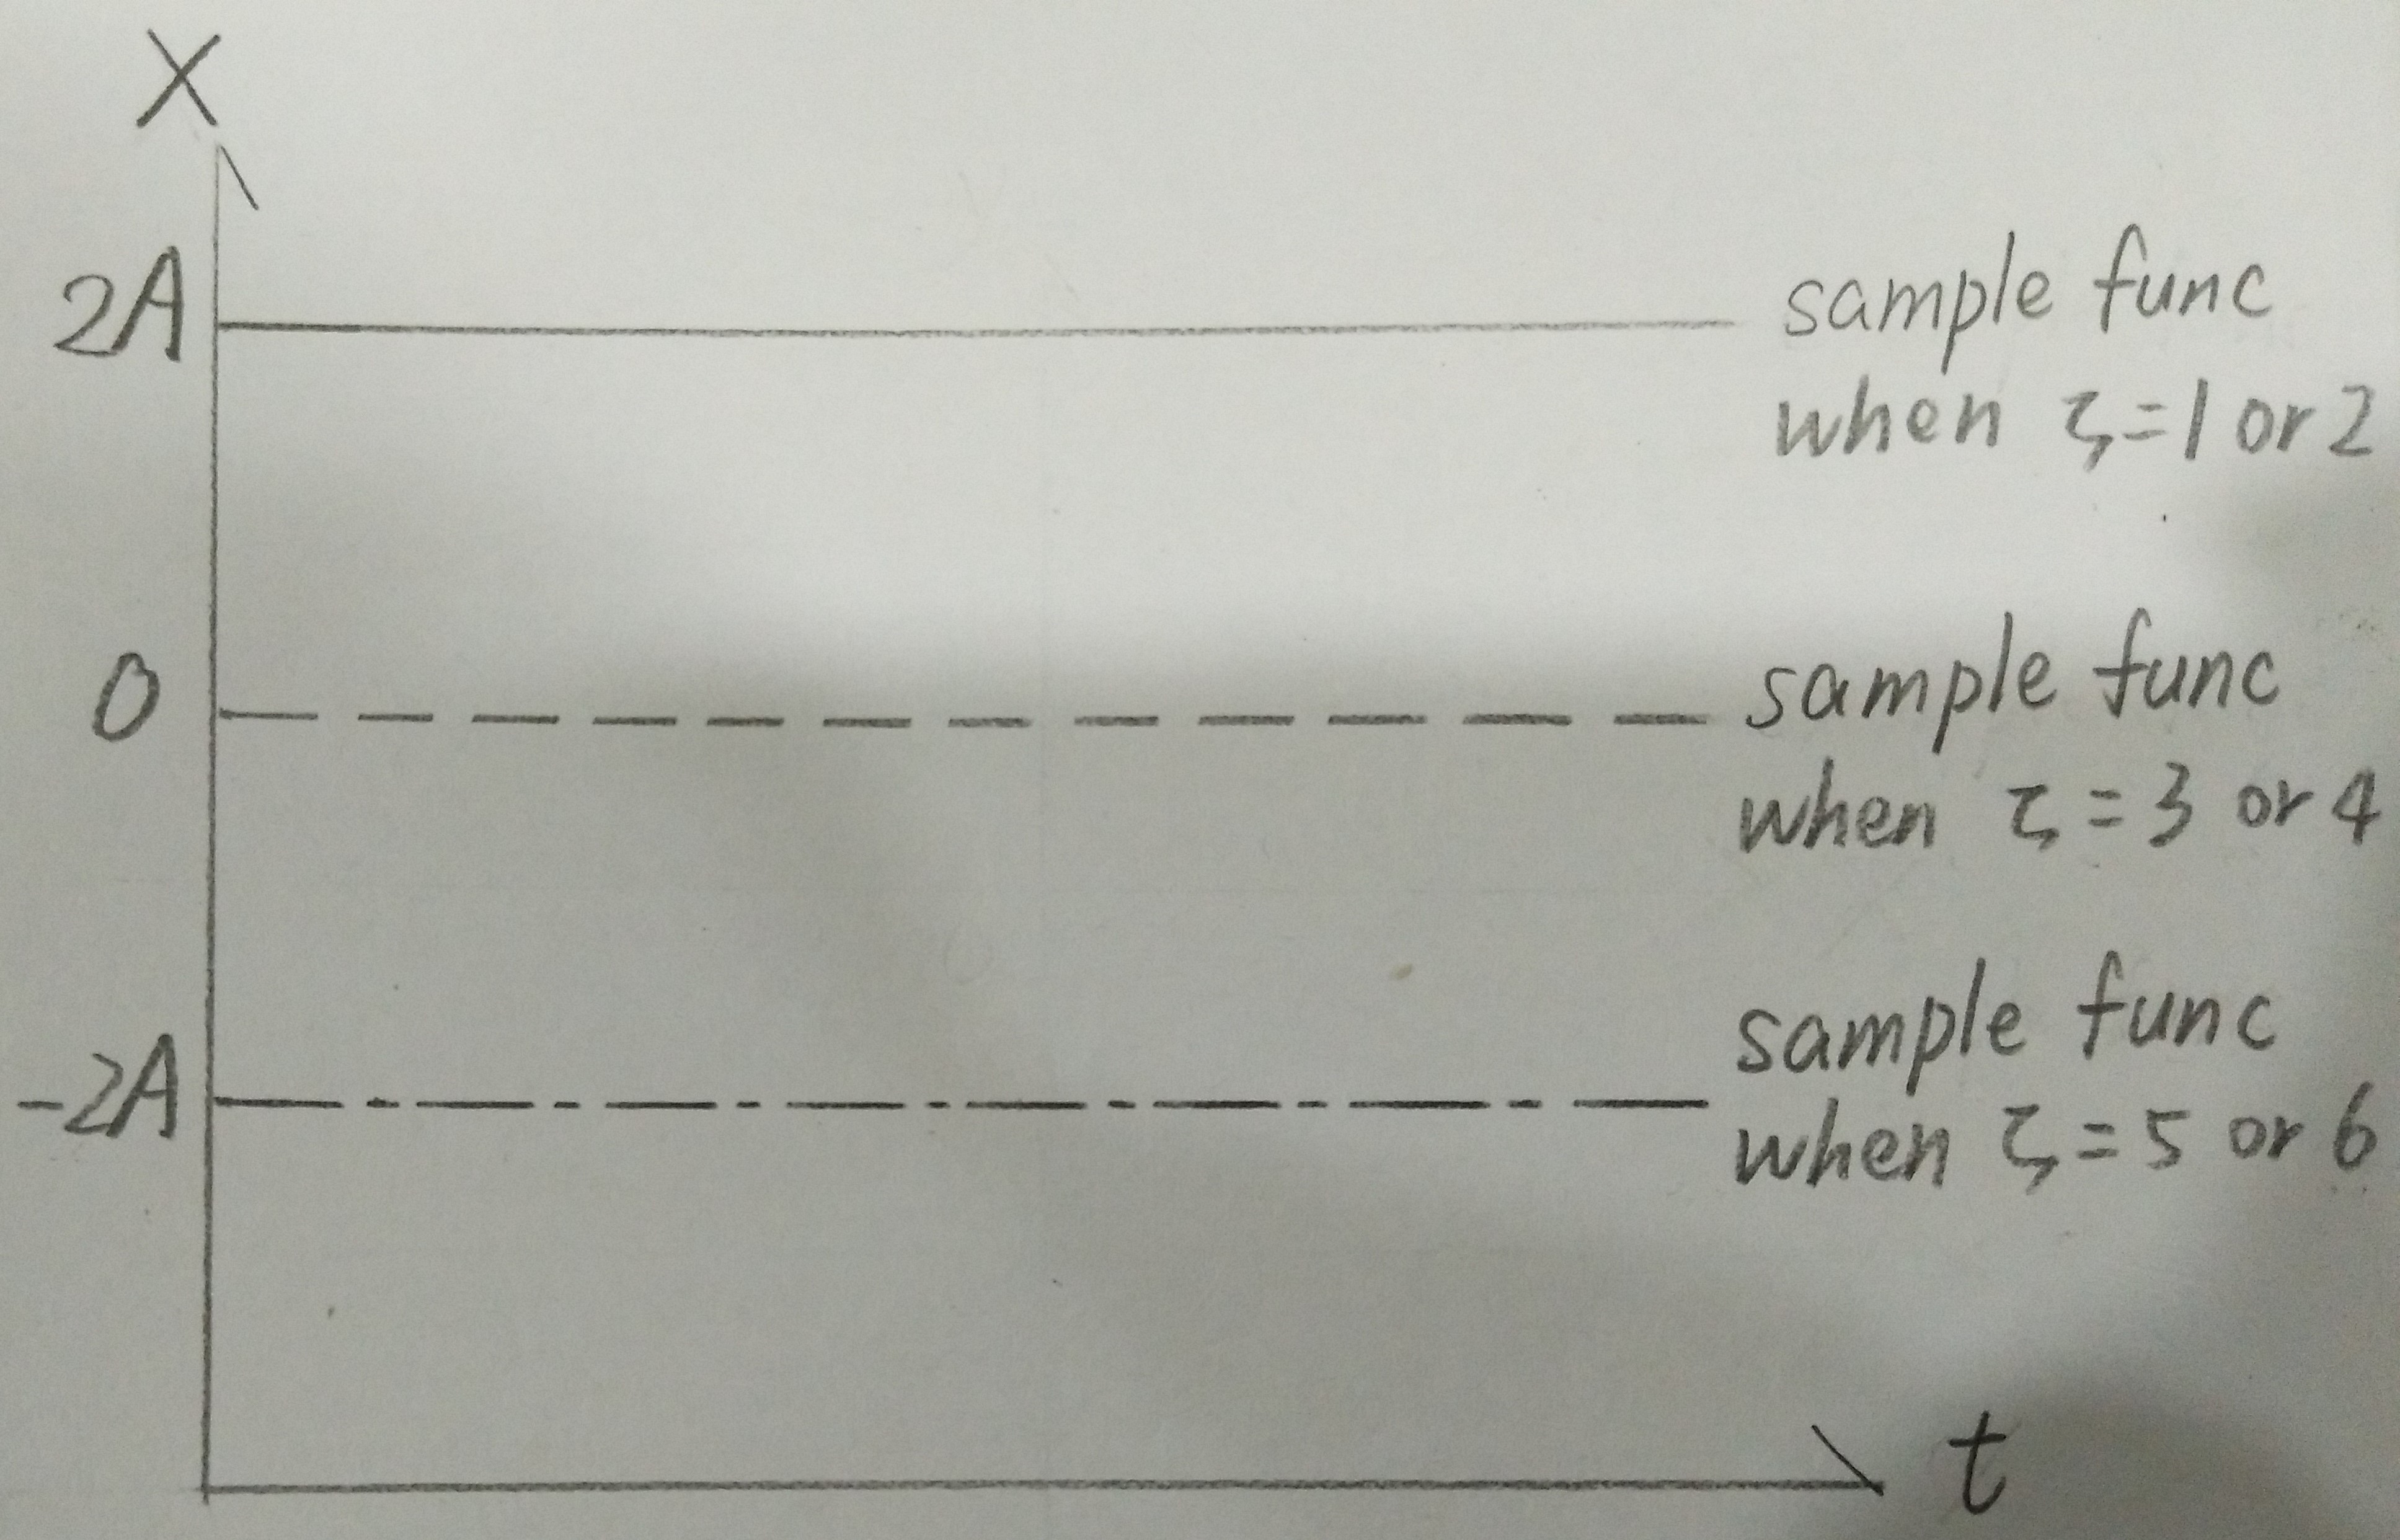 X
2A
sample func
when ζ=1 or 2
0
sample func
when ζ=3 or 4
-2A
sample func
when ζ=5 or 6
t